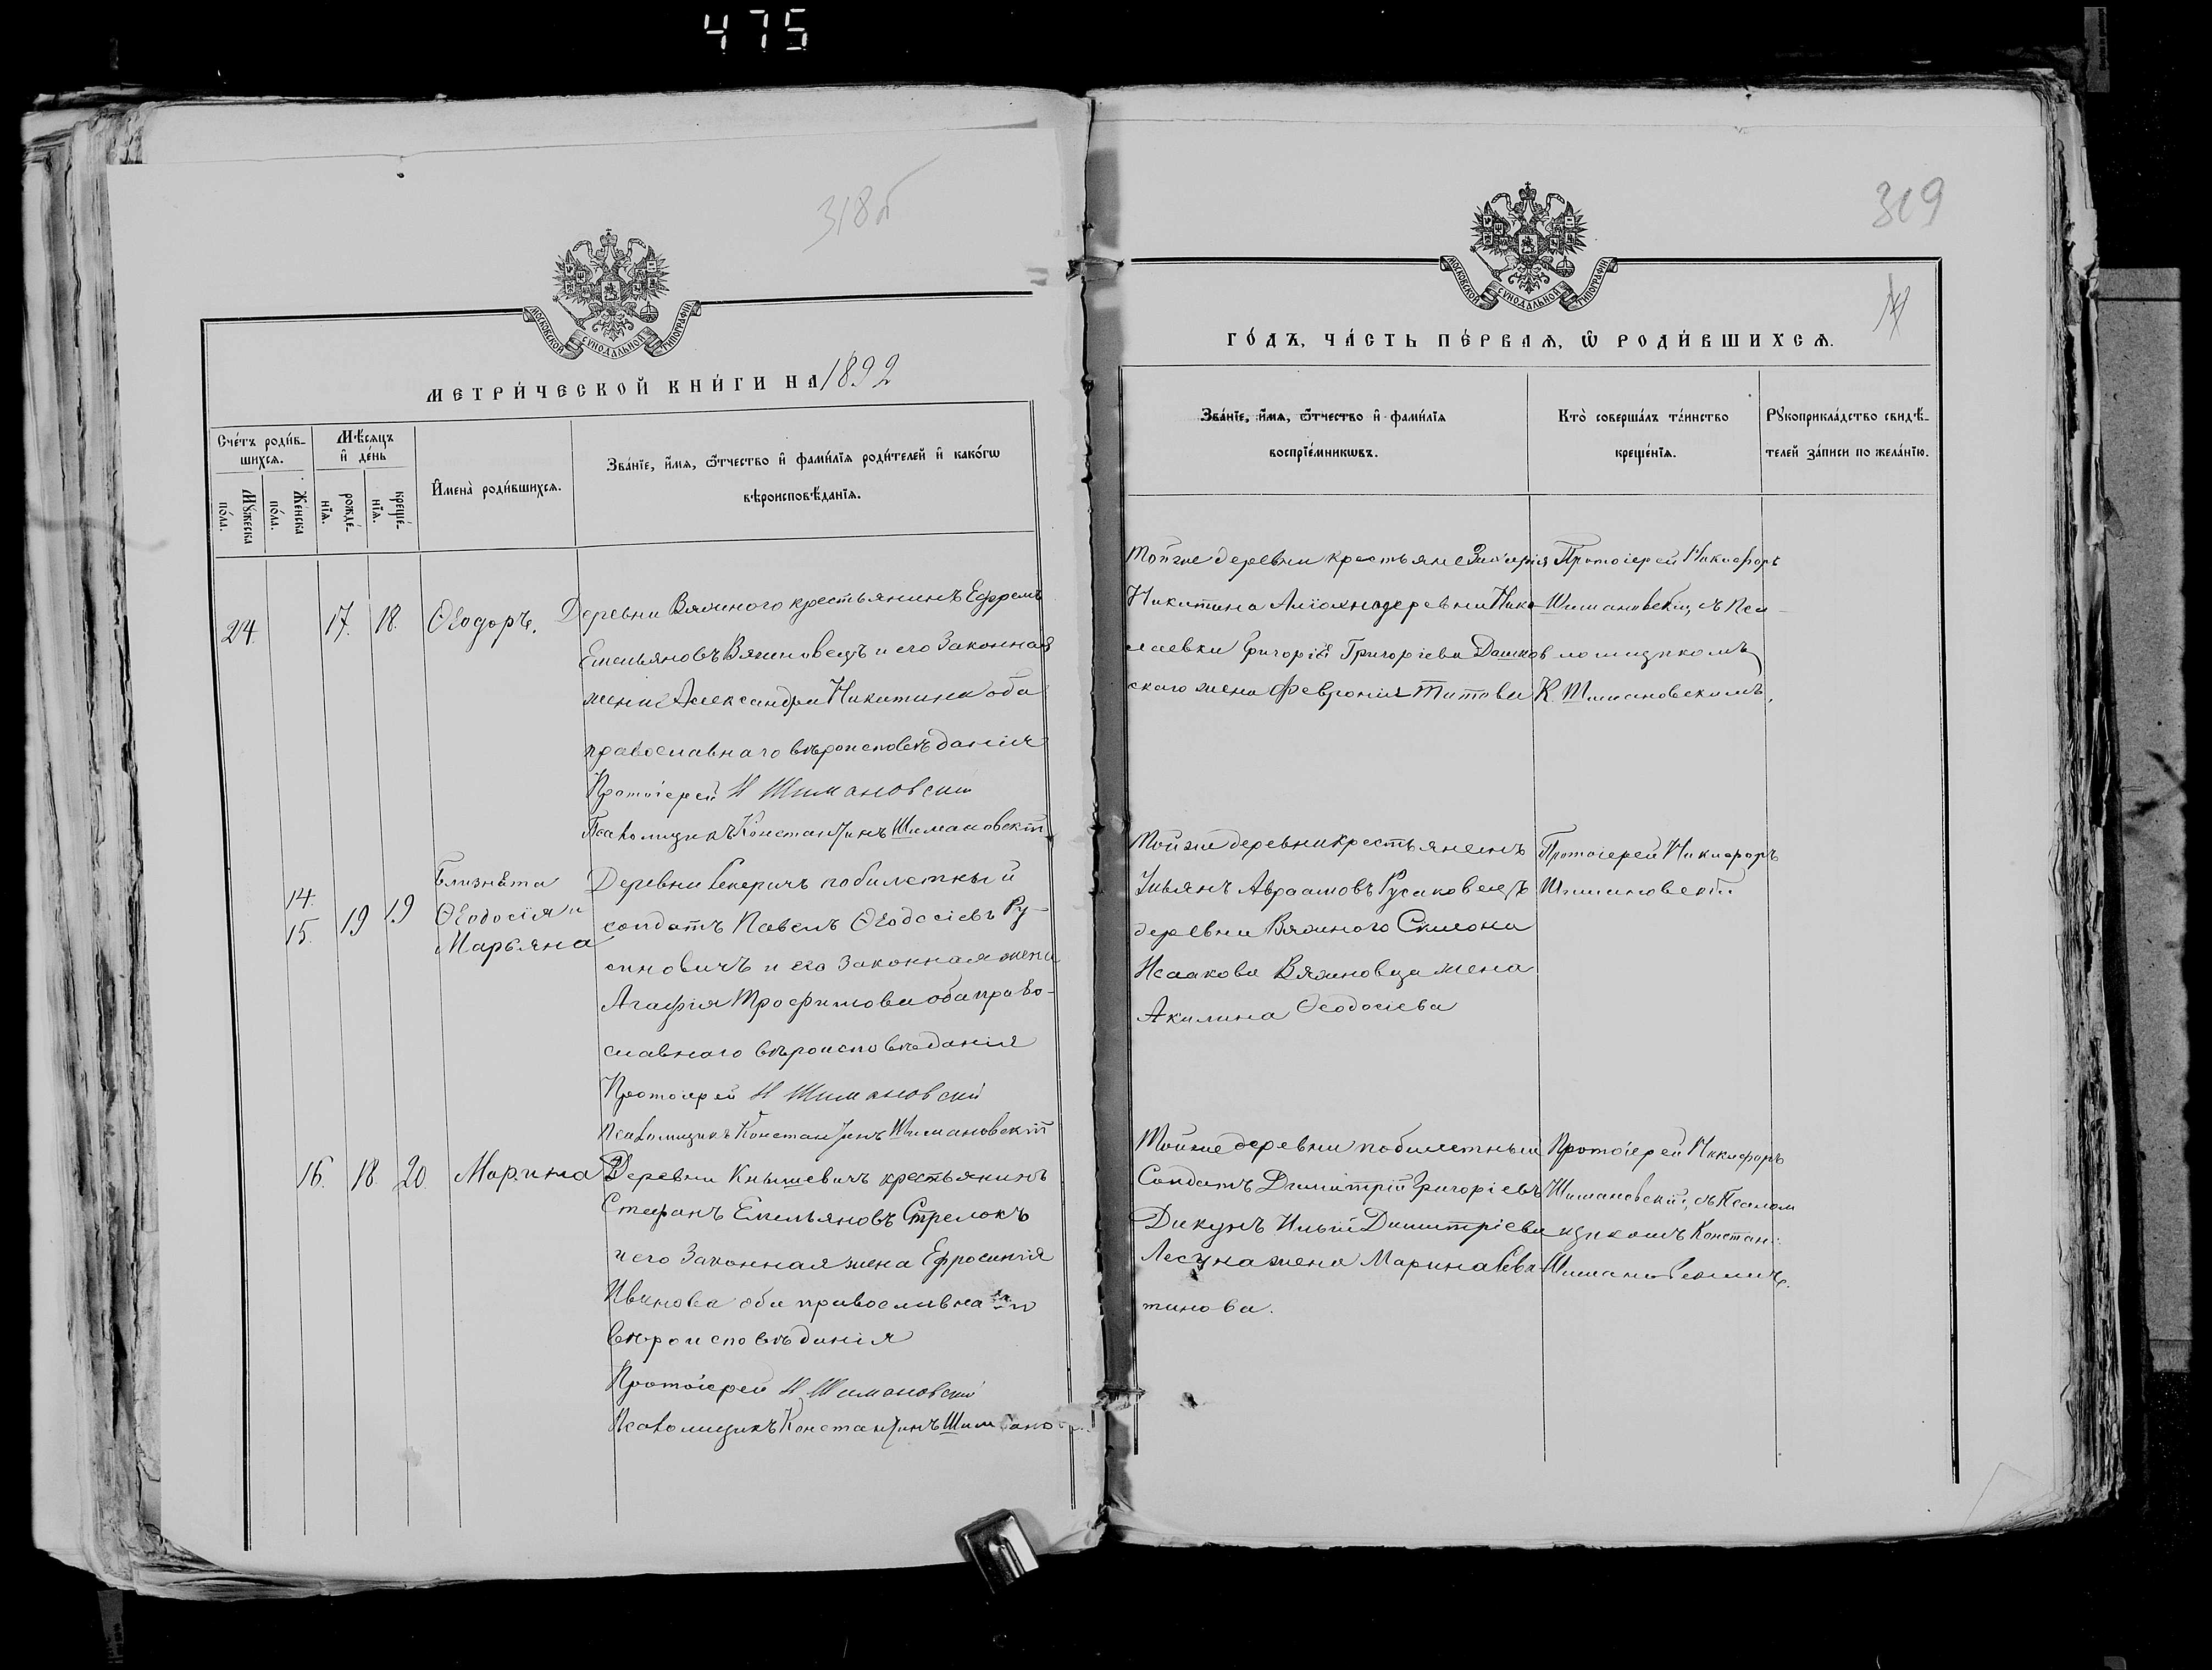 475
318б
МОСКОВСКОЙ СѴНОДАЛЬНОЙ ТИПОГРАФІИ
МЕТРИ́ЧЕСКОЙ КНИ́ГИ НА 1892
Сче́тъ роди́в-
шихся.
Мѣ́сяцъ
и҆ де́нь
Мꙋ́жеска
по́ла.
Же́нска
по́ла.
рожде́-
нїѧ.
креще́-
нїѧ.
И҆мена̀ роди́вшихсѧ.
Зва́нїе, и҆́мѧ, ѻ҆́тчество и҆ фами́лїѧ роди́телей и҆ како́гѡ
вѣроисповѣ́данїѧ.
24.
17.
18.
Ѳеодоръ.
Деревни Вяжного крестьянинъ Ефремъ
Емельяновъ Вяжновецъ и его законная
жена Александра Никитина оба
православнаго вѣроисповѣданія
Протоіерей Н Шимановскій
Псаломщикъ Константинъ Шимановскій
14.
15.
19
19
Близнята
Ѳеодосія и
Марьяна
Деревни Секеричъ побилетный
солдатъ Павелъ Ѳеодосіевъ Ру-
синовичъ и его законная жена
Агафія Трофимова оба право-
славнаго вѣроисповѣданія
Протоіерей Н Шимановскій
Псаломщикъ Константинъ Шимановскій
16.
18.
20.
Марина
Деревни Кнышевичъ крестьянинъ
Стефанъ Емельяновъ Стрелокъ
и его законная жена Ефросинія
Иванова оба православнаго
вѣроисповѣданія
Протоіерей Н Шимановскій
Псаломщикъ Константинъ Шимано
319
МОСКОВСКОЙ СѴНОДАЛЬНОЙ ТИПОГРАФІИ
ГО́ДЪ, ЧА́СТЬ ПЕ́РВАѦ, Ѡ҆ РОДИ́ВШИХСѦ.
Зва́нїе, и҆́мѧ, ѻ҆́тчество и҆ фами́лїѧ
воспрїе́мникѡвъ.
Кто̀ соверша́лъ та́инство
креще́нїѧ.
Рꙋкоприкла́дство свидѣ́-
телей за́писи по жела́нїю.
Тойже деревни крестьяне Захарія
Никитина деревни Нико
лаевки Григорія Григоріева Дашков
скаго жена Февронія Титова
Протоіерей Никифоръ
Шимановскій, съ Пса-
ломщикомъ
К. Шимановскимъ.
Тойже деревни крестьянинъ
Ульянъ Авраамовъ Русаковецъ
деревни Вяжного Симона
Исаакова Вяжновца жена
Акилина Ѳеодосіева
Протоіерей Никифоръ
Шимановскій
Тойже деревни побилетный
Солдатъ Димитрій Григоріевъ
Дикунъ Ильи Димитріева
Лесуна жена Марина Сева-
тинова.
Протоіерей Никифоръ
Шимановскій, съ Псалом
щикомъ Констан.
Шимановскимъ.